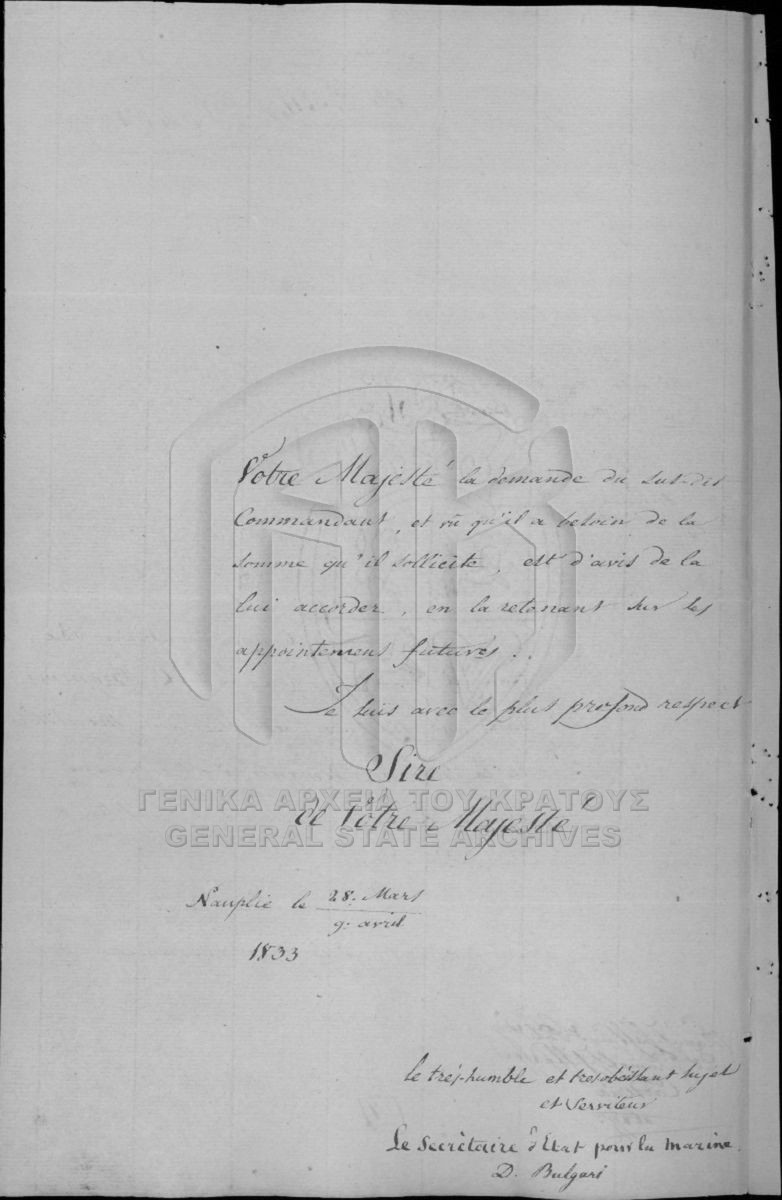 Vôtre Majesté la demande du sus-dit
Commandant, et vû qu'il a besoin de la
somme qu'il sollicite, est d'avis de la
lui accorder, en la retenant sur les
appointemens futures.
Je suis avec le plus profond respect
Sire
de Vôtre Majesté
ΓΕΝΙΚΑ ΑΡΧΕΙΑ ΤΟΥ ΚΡΑΤΟΥΣ
GENERAL STATE ARCHIVES
Nauplie le 28. Mars
9. avril
1833
le très-humble et tres obéissant sujet
et Serviteur
Le Secrètaire d'Etat pour la marine
D. Bulgari